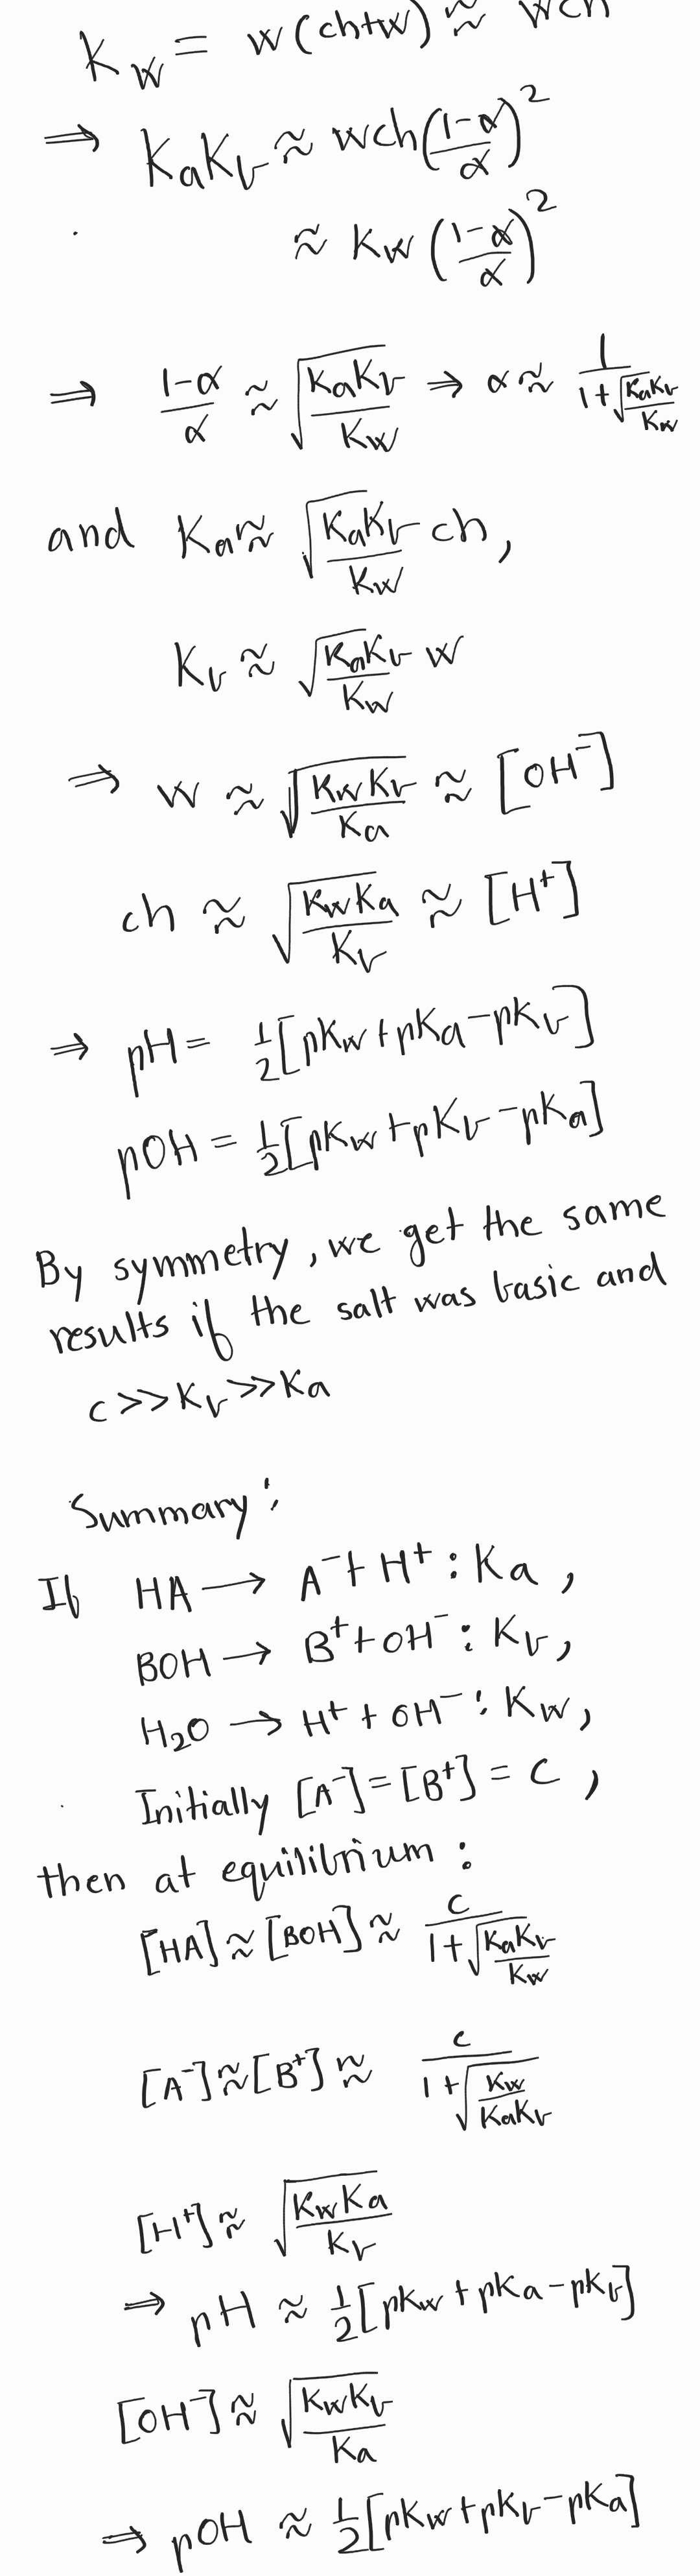 K_w = w(ch+w) ≈ wch
⇒ K_a K_b ≈ wch((1-α)/α)²
≈ K_w ((1-α)/α)²
⇒ (1-α)/α ≈ √(K_a K_b/K_w) ⇒ α ≈ 1/(1+√(K_a K_b/K_w))
and K_a ≈ √(K_a K_b/K_w) ch,
K_b ≈ √(K_a K_b/K_w) w
⇒ w ≈ √(K_w K_b/K_a) ≈ [OH⁻]
ch ≈ √(K_w K_a/K_b) ≈ [H⁺]
⇒ pH = 1/2[pK_w + pK_a - pK_b]
pOH = 1/2[pK_w + pK_b - pK_a]
By symmetry, we get the same
results if the salt was basic and
c >> K_b >> K_a
Summary:
If HA → A⁻ + H⁺ : K_a,
BOH → B⁺ + OH⁻ : K_b,
H₂O → H⁺ + OH⁻ : K_w,
Initially [A⁻] = [B⁺] = C,
then at equilibrium:
[HA] ≈ [BOH] ≈ c/(1+√(K_a K_b/K_w))
[A⁻] ≈ [B⁺] ≈ c/(1+√(K_w/K_a K_b))
[H⁺] ≈ √(K_w K_a/K_b)
⇒ pH ≈ 1/2[pK_w + pK_a - pK_b]
[OH⁻] ≈ √(K_w K_b/K_a)
⇒ pOH ≈ 1/2[pK_w + pK_b - pK_a]